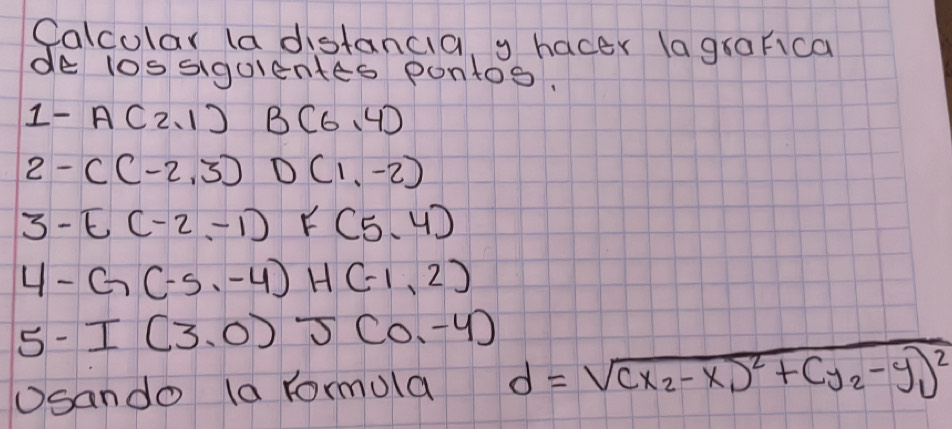 Calcular la distancia y hacer la grafica
de los siguientes puntos.
1- A(2,1) B(6,4)
2- C(-2,3) D(1,-2)
3- E(-2,-1) F(5,4)
4- G(-5,-4) H(-1,2)
5- I (3,0) J(0,-4)
Usando la formula d = √(x₂-x₁)² + (y₂-y₁)²